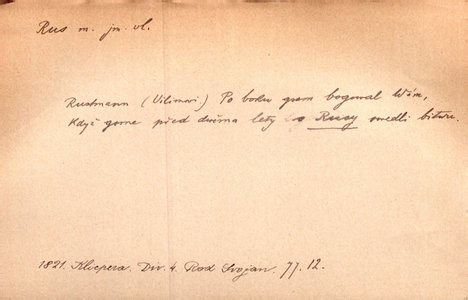 Rus m. jm. vl.
Rustmann (Vilímovi) Po boku gsem bogowal Wám,
Když gsme před dwěma lety s Rusy swedli bitwu.
1821. Klicpera. Div. 4. Rod Svojan. 77. 12.